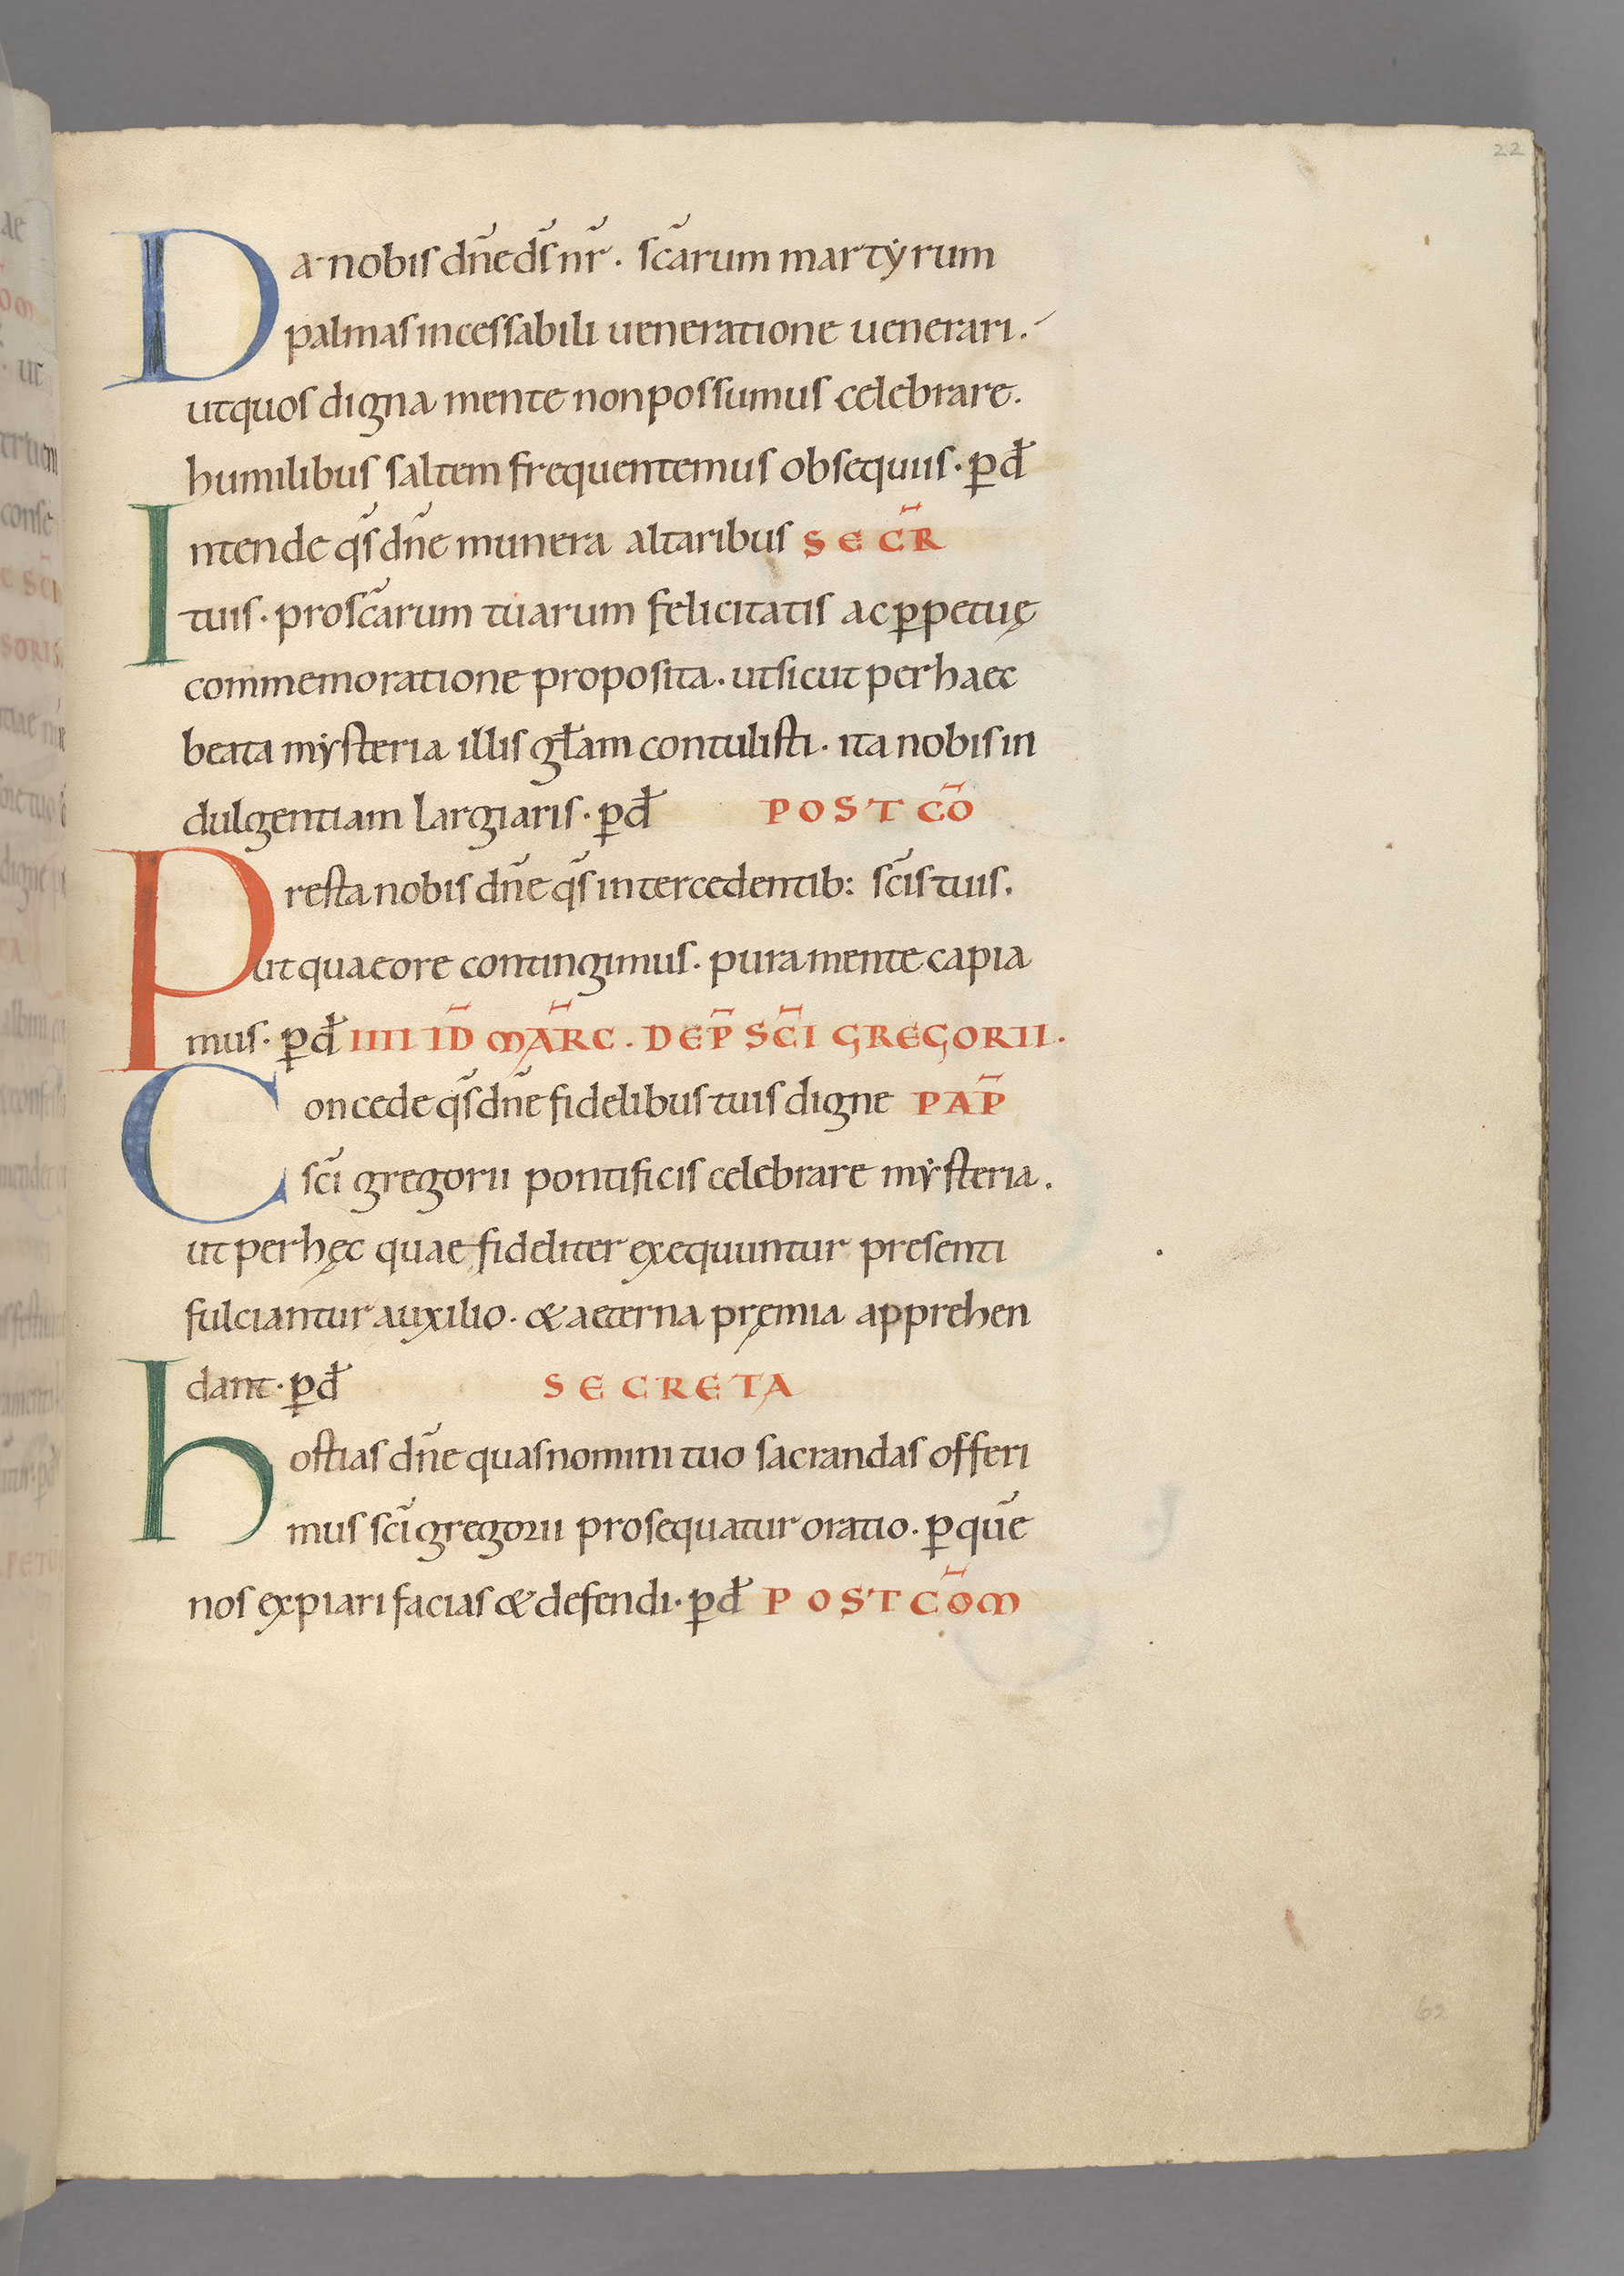 22
Da nobis dñe ds̃ nr̃. sc̃arum martẏrum
palmas incessabili ueneratione uenerari.
ut quos digna mente non possumus celebrare.
humilibus saltem frequentemus obsequiis· p̱ đ
Intende qs̃ dñe munera altaribus SECR̃
tuis· pro sc̃arum tuarum felicitatis ac p̱petuę
commemoratione proposita· ut sicut per haec
beata mẏsteria illis gl̃am contulisti· ita nobis in
dulgentiam largiaris· p̱ đ POST CÕ
Presta nobis dñe qs̃ intercedentib: sc̃is tuis.
ut quae ore contingimus· pura mente capia
mus· p̱ đ IIII ID̃ MAR̃C. DEP̃ SC̃I GREGORII.
Concede qs̃ dñe fidelibus tuis digne PAP̃
sc̃i gregorii pontificis celebrare mẏsteria.
ut per hęc quae fideliter exequuntur presenti
fulciantur auxilio· & aeterna pręmia apprehen
dant· p̱ đ SECRETA
hostias dñe quas nomini tuo sacrandas offeri
mus sc̃i gregorii prosequatur oratio· p̱ quẽ
nos expiari facias & defendi· p̱ đ POST CÕM
62